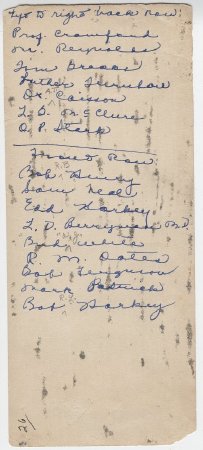 Left to right back row.
Prof. Crawford
Mr. Reynolds
Jim Brooks
Luther Turnbow
Dr. Caisson
L. D. McClure
O. P. Stark
Front Row
Bob Henry
Sam Neal
Earl Harkey
L. D. Berryman Md.
Bill White
R. M. Oates
Bob Ferguson
Mark Patrick
Bob Harkey
26